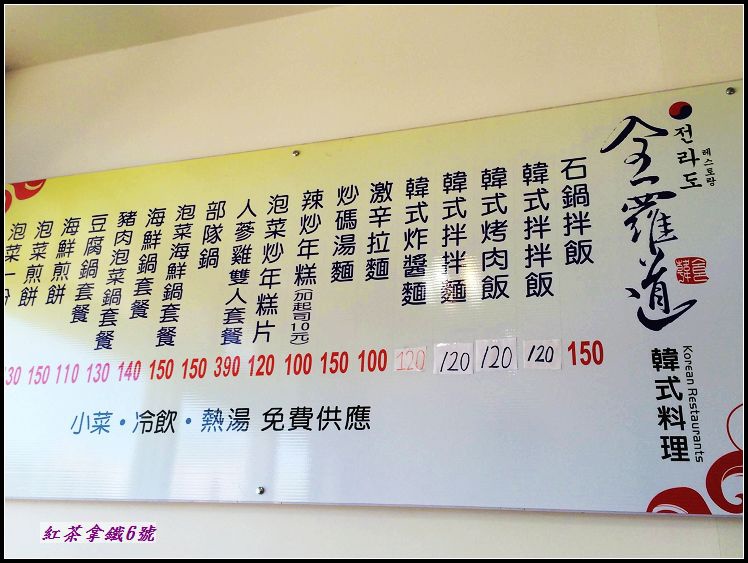 전라도
레스토랑
全羅道
韓式料理
Korean Restaurants
石鍋拌飯 150
韓式拌拌飯 120
韓式烤肉飯 120
韓式拌拌麵 120
韓式炸醬麵 120
激辛拉麵 100
炒碼湯麵 150
辣炒年糕(加起司10元) 100
泡菜炒年糕片 120
人蔘雞雙人套餐 390
部隊鍋 150
泡菜海鮮鍋套餐 150
海鮮鍋套餐 140
豬肉泡菜鍋套餐 130
豆腐鍋套餐 110
海鮮煎餅 150
泡菜煎餅 30
泡菜一份
小菜・冷飲・熱湯 免費供應
紅茶拿鐵6號